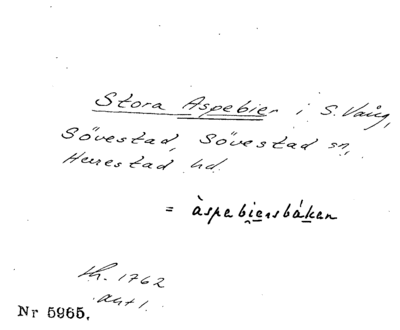 Stora Aspebier i S. Vång,
Sövestad, Sövestad sn,
Herrestad hd.
= àspebiersbáken
Lh. 1762
akt 1.
Nr 5965.